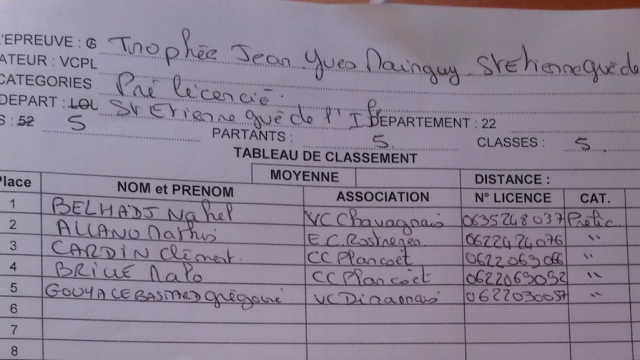 L'EPREUVE : G Trophée Jean Yves Mainguy St Etienne gué de
ATEUR : VCPL
CATEGORIES Pré licencié
DEPART : LOU St Etienne gué de l'Isle DEPARTEMENT : 22
S : 52 5 PARTANTS : 5 CLASSES : 5
TABLEAU DE CLASSEMENT
MOYENNE DISTANCE :
Place NOM et PRENOM ASSOCIATION N° LICENCE CAT.
1 BELHADJ Nahel VC Chavagnais 0635248037
2 ALLANO Mathis E.C. Rostrenen 0622424076 "
3 CARDIN Clément CC Plancoët 0622069066 "
4 BRICE Malo CC Plancoët 0622069052 "
5 GOUYA CE BASTARD Grégoire VC Dinannais 0622030057 "
6
7
8